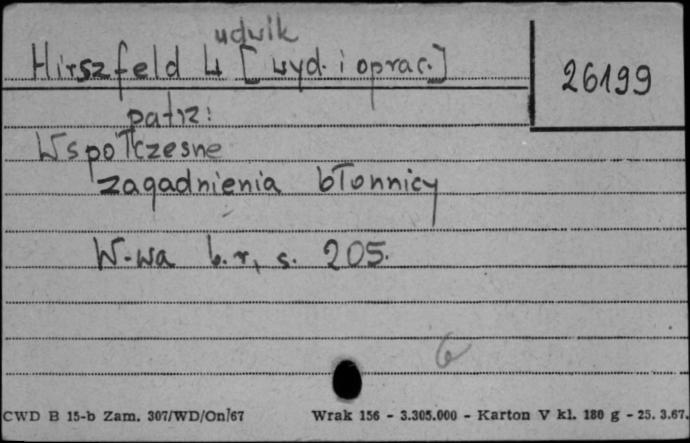 Hirszfeld Ludwik [wyd. i oprac.]
26199
patrz:
Wspołczesne
zagadnienia błonnicy
W-wa b.r, s. 205.
6
CWD B 15-b Zam. 307/WD/On/67 Wrak 156 - 3.305.000 - Karton V kl. 180 g - 25. 3.67.